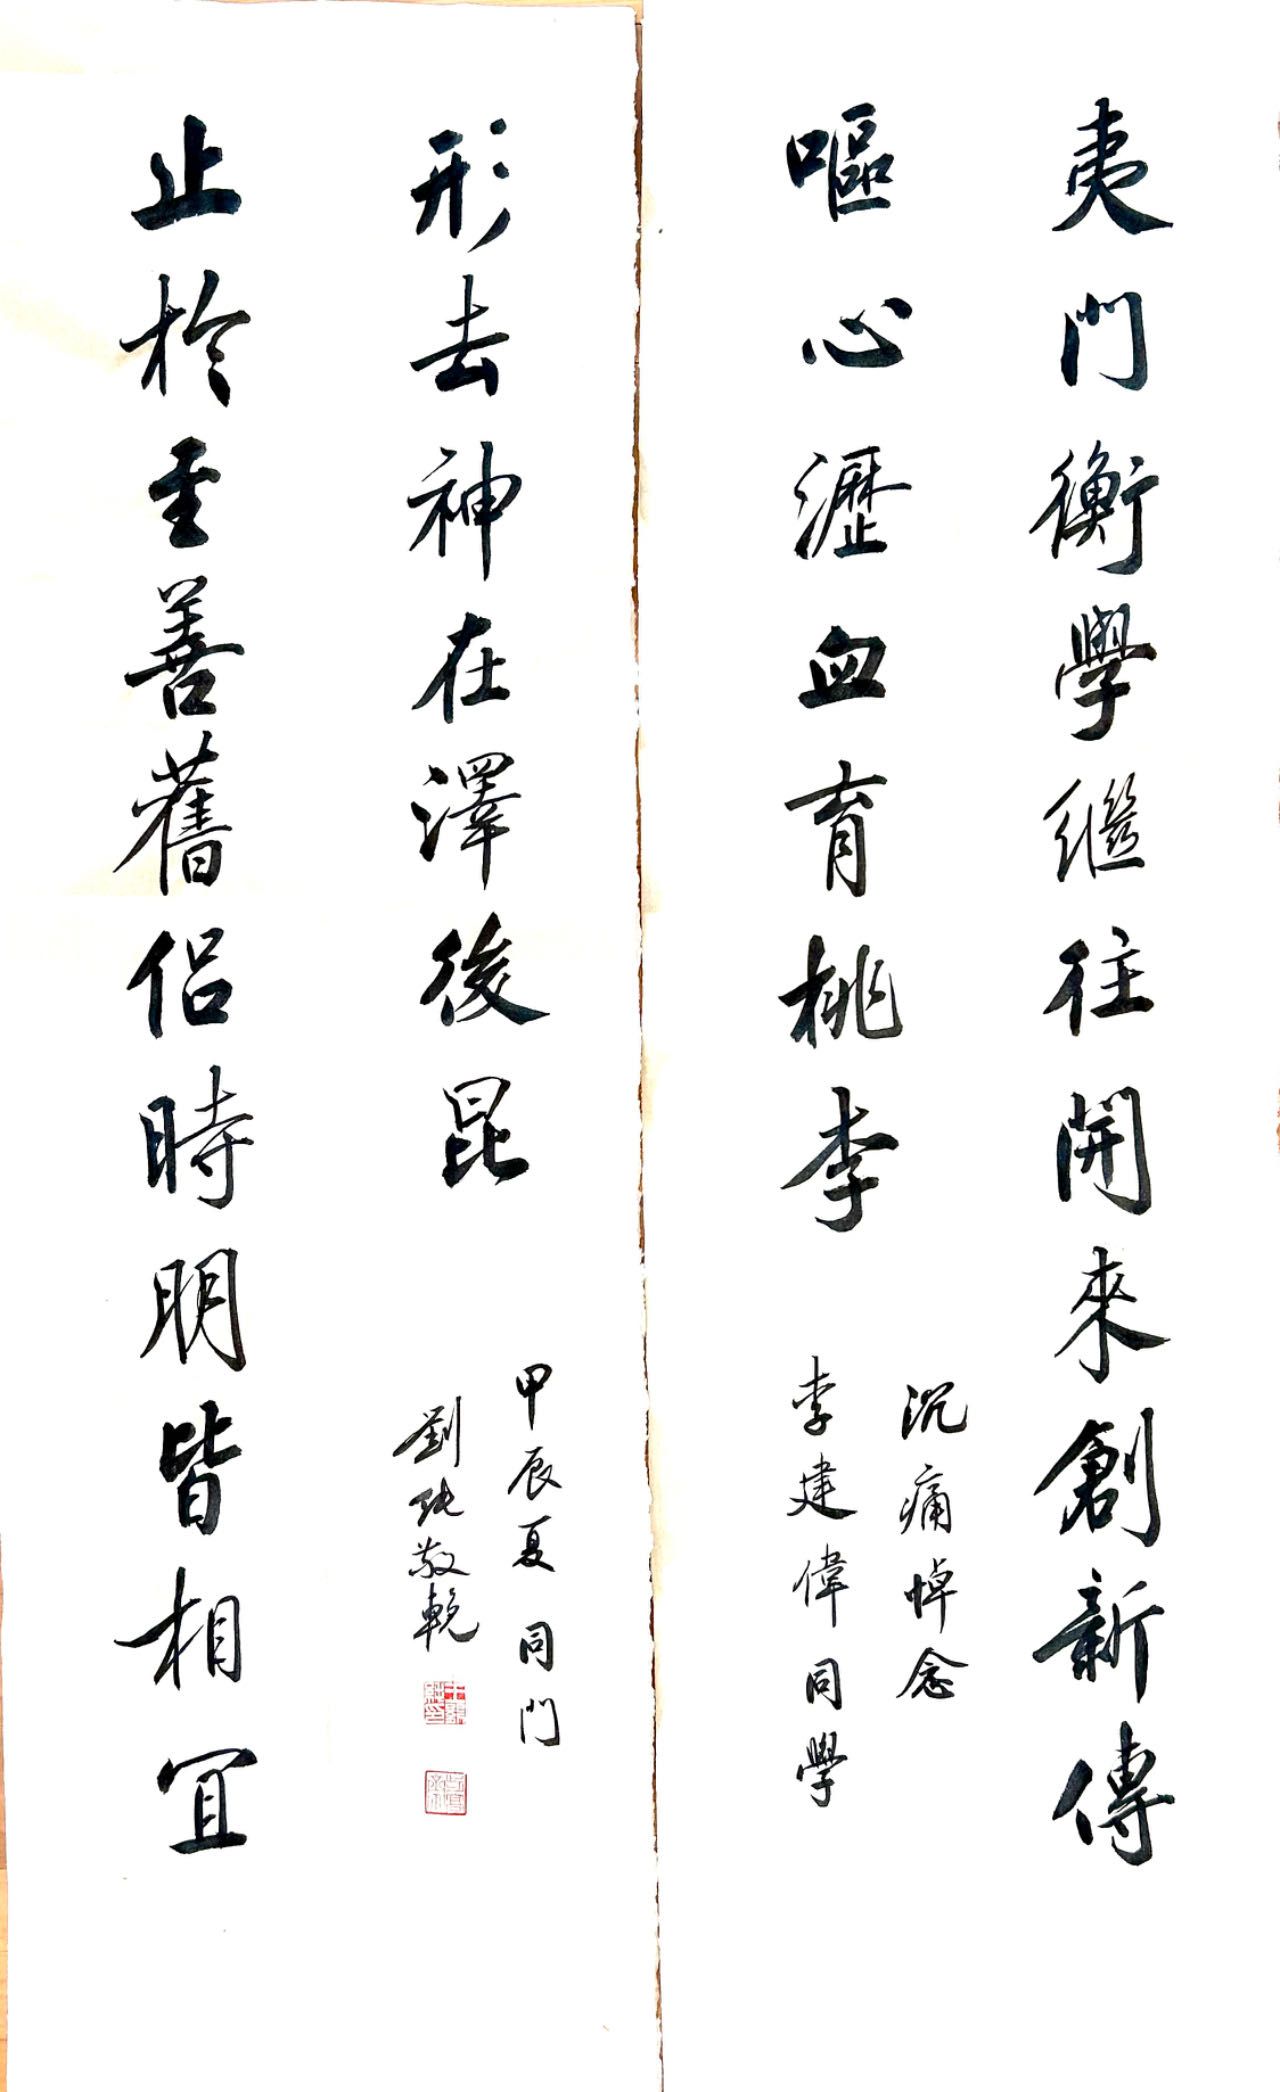 夷門衡學繼往開來創新傳
嘔心瀝血育桃李
沉痛悼念
李建偉同學
止於至善舊侶時朋皆相宜
形去神在澤後昆
甲辰夏同門
劉敬輓